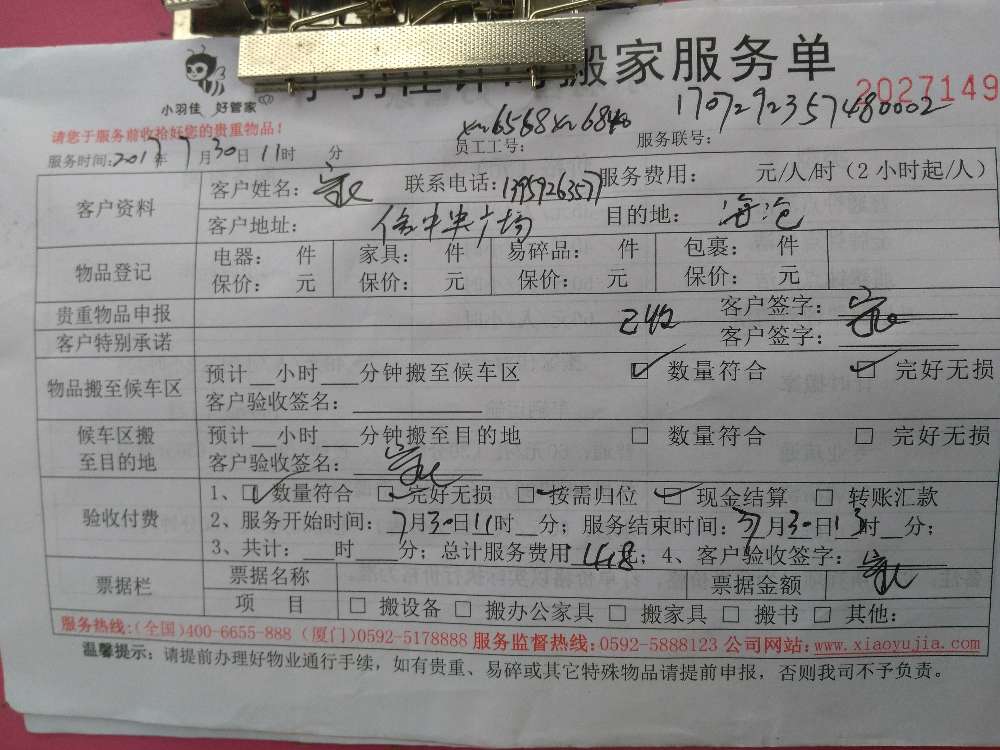 搬家服务单
2027149
小羽佳 好管家
请您于服务前收拾好您的贵重物品！
xm6568xm6840
1707292357480002
员工工号： 服务联号：
服务时间:2017年7月30日11时 分
客户资料 客户姓名： 联系电话:13959263571 服务费用： 元/人/时（2小时起/人）
客户地址： 中央广场 目的地： 海沧
物品登记 电器： 件 家具： 件 易碎品： 件 包裹： 件
保价： 元 保价： 元 保价： 元 保价： 元
贵重物品申报 客户签字：
客户特别承诺 已收 客户签字：
物品搬至候车区 预计__小时___分钟搬至候车区 ☑ 数量符合 ☑ 完好无损
客户验收签名：
候车区搬至目的地 预计__小时___分钟搬至目的地 □ 数量符合 □ 完好无损
客户验收签名：
验收付费 1、☑数量符合 ☑完好无损 ☑按需归位 ☑现金结算 □ 转账汇款
2、服务开始时间：7月30日11时__分；服务结束时间：7月30日13时__分；
3、共计：___时___分；总计服务费用148元；4、客户验收签字：
票据栏 票据名称 票据金额
项 目 □ 搬设备 □ 搬办公家具 □ 搬家具 □ 搬书 □ 其他：
服务热线:(全国)400-6655-888（厦门)0592-5178888 服务监督热线:0592-5888123 公司网站:www.xiaoyujia.com
温馨提示：请提前办理好物业通行手续，如有贵重、易碎或其它特殊物品请提前申报，否则我司不予负责。